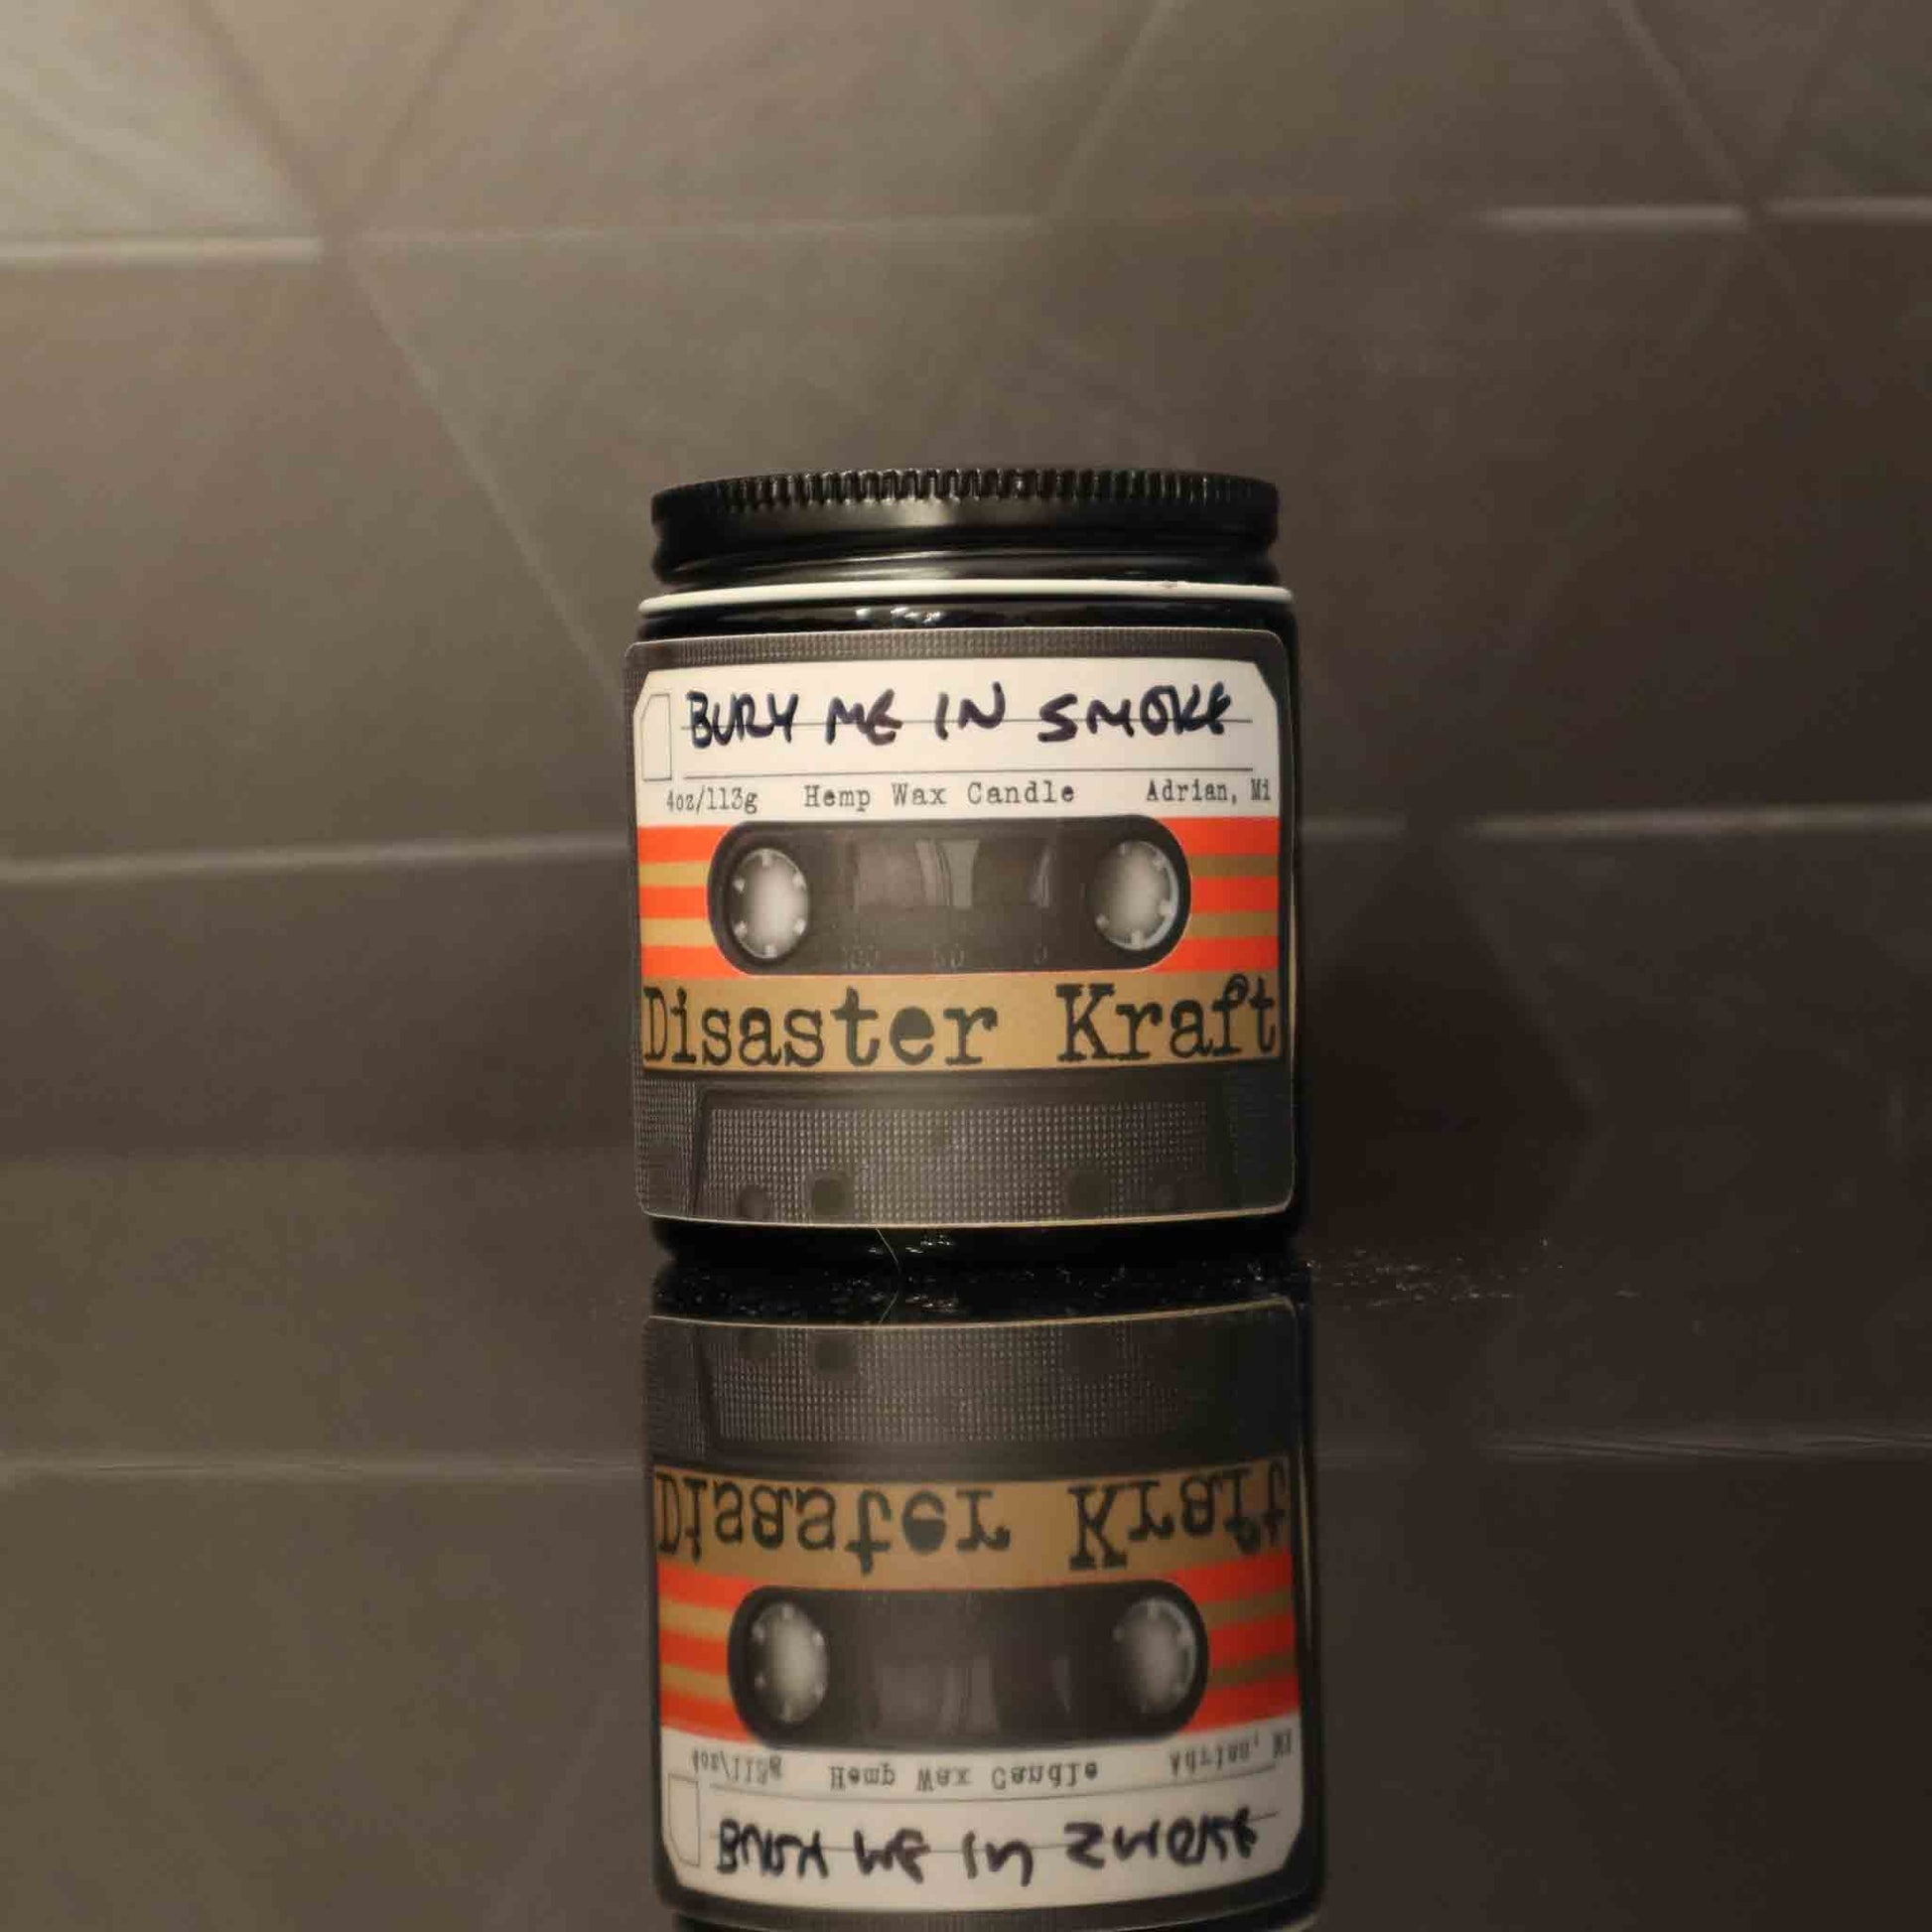 BURY ME IN SMOKE
4oz/113g Hemp Wax Candle Adrian, Mi
Disaster Kraft